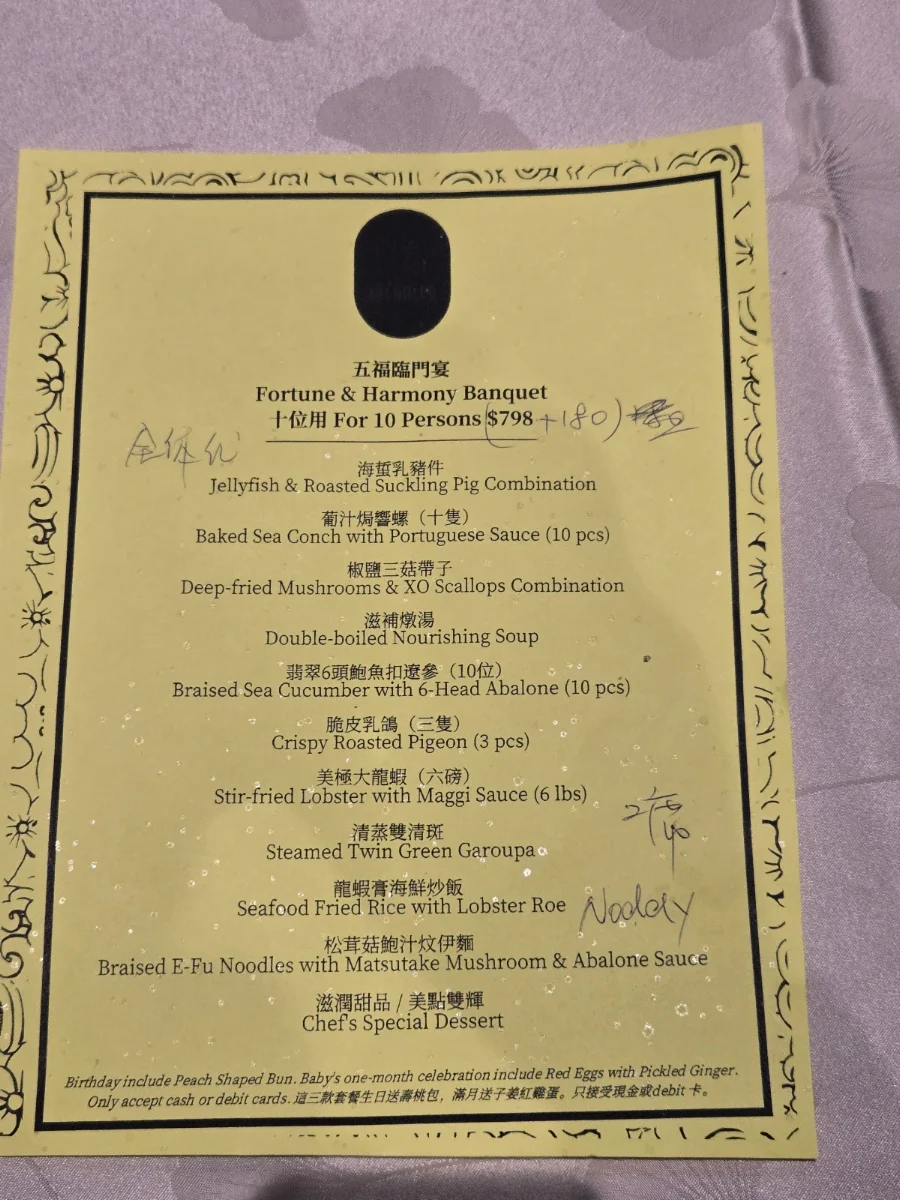 五福臨門宴
Fortune & Harmony Banquet
十位用 For 10 Persons $798 (+180)
海蜇乳豬件
Jellyfish & Roasted Suckling Pig Combination
葡汁焗響螺（十隻）
Baked Sea Conch with Portuguese Sauce (10 pcs)
椒鹽三菇帶子
Deep-fried Mushrooms & XO Scallops Combination
滋補燉湯
Double-boiled Nourishing Soup
翡翠6頭鮑魚扣遼參（10位）
Braised Sea Cucumber with 6-Head Abalone (10 pcs)
脆皮乳鴿（三隻）
Crispy Roasted Pigeon (3 pcs)
美極大龍蝦（六磅）
Stir-fried Lobster with Maggi Sauce (6 lbs)
清蒸雙清斑
Steamed Twin Green Garoupa
龍蝦膏海鮮炒飯
Seafood Fried Rice with Lobster Roe
松茸菇鮑汁炆伊麵
Braised E-Fu Noodles with Matsutake Mushroom & Abalone Sauce
滋潤甜品 / 美點雙輝
Chef's Special Dessert
Birthday include Peach Shaped Bun. Baby's one-month celebration include Red Eggs with Pickled Ginger.
Only accept cash or debit cards. 這三款套餐生日送壽桃包，滿月送子姜紅雞蛋。只接受現金或debit 卡。